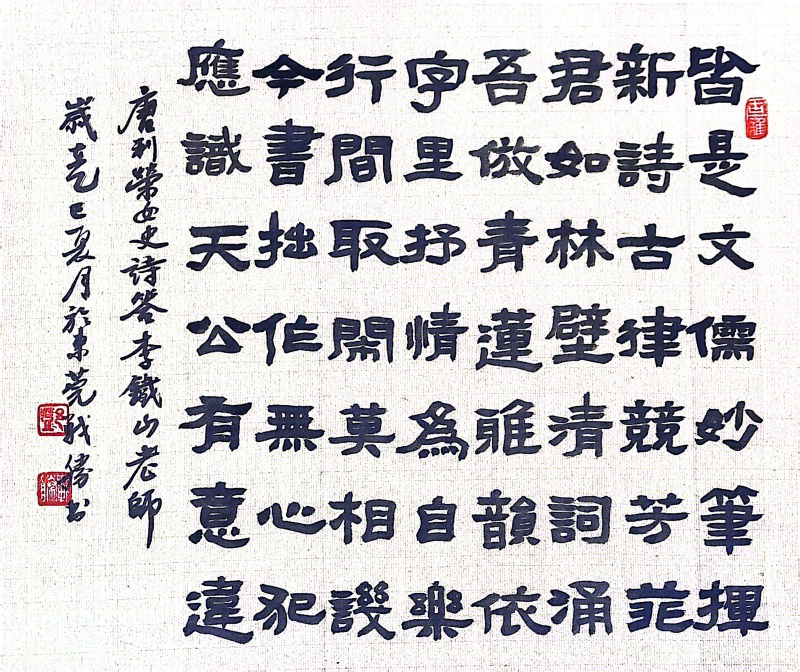 皆是文儒妙筆揮
新詩古律競芳菲
君如林壁清詞涌
吾倣青蓮雅韻依
字里抒情為自樂
行間取閙莫相譏
今書拙作無心犯
應識天公有意違
唐利榮女史詩答李鐵山老師
歲在乙巳夏月於東莞戰勝书